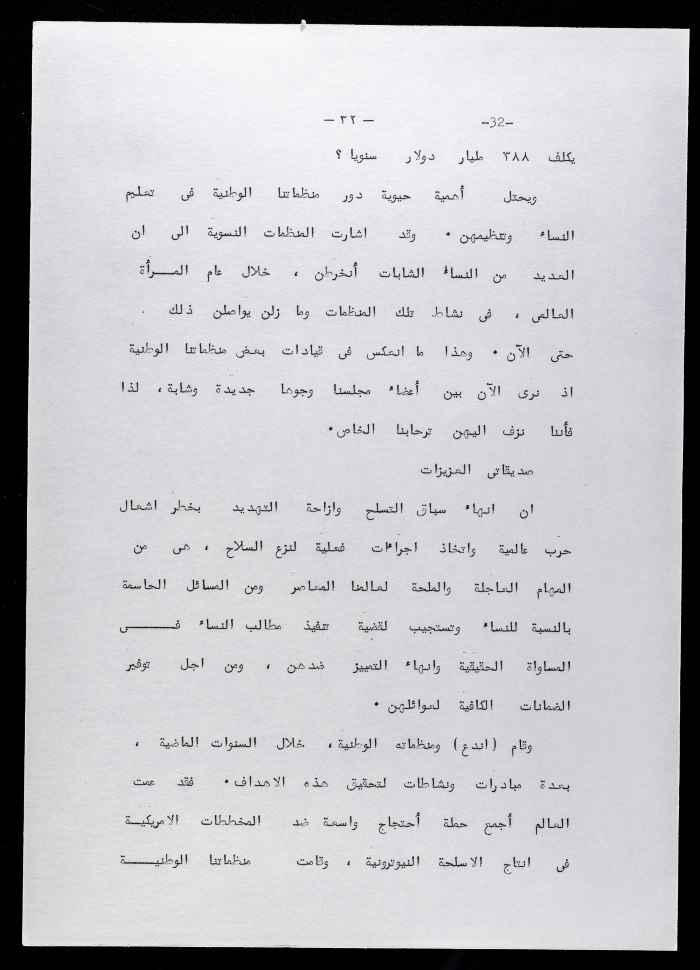 -32- — ٣٢ —
يكلف ٣٨٨ مليار دولار سنويا ؟
ويحتل أهمية حيوية دور منظماتنا الوطنية فى تعليم
النساء وتنظيمهن . وقد اشارت المنظمات النسوية الى ان
العديد من النساء الشابات أنخرطن ، خلال عام المـــرأة
العالمى ، فى نشاط تلك المنظمات وما زلن يواصلن ذلك .
حتى الآن . وهذا ما انعكس فى قيادات بعض منظماتنا الوطنية
اذ نرى الآن بين أعضاء مجلسنا وجوها جديدة وشابة، لذا
فأننا نزف اليهن ترحابنا الخاص.
صديقاتى العزيزات
ان انهاء سباق التسلح وازاحة التهديد بخطر اشعال
حرب عالمية واتخاذ اجراءات فعلية لنزع السلاح ، هى من
المهام العاجلة والملحة لعالمنا المعاصر ومن المسائل الحاسمة
بالنسبة للنساء وتستجيب لقضية تنفيذ مطالب النساء فــــــى
المساواة الحقيقية وانهاء التمييز ضدهن ، ومن اجل توفير
الضمانات الكافية لعوائلهن .
وقام (اندع) ومنظماته الوطنية، خلال السنوات الماضية ،
بعدة مبادرات ونشاطات لتحقيق هذه الاهداف. فقد عمت
العالم أجمع حملة أحتجاج واسعة ضد المخططات الامريكيـة
فى انتاج الاسلحة النيوترونية ، وقامت منظماتنا الوطنيـــــة